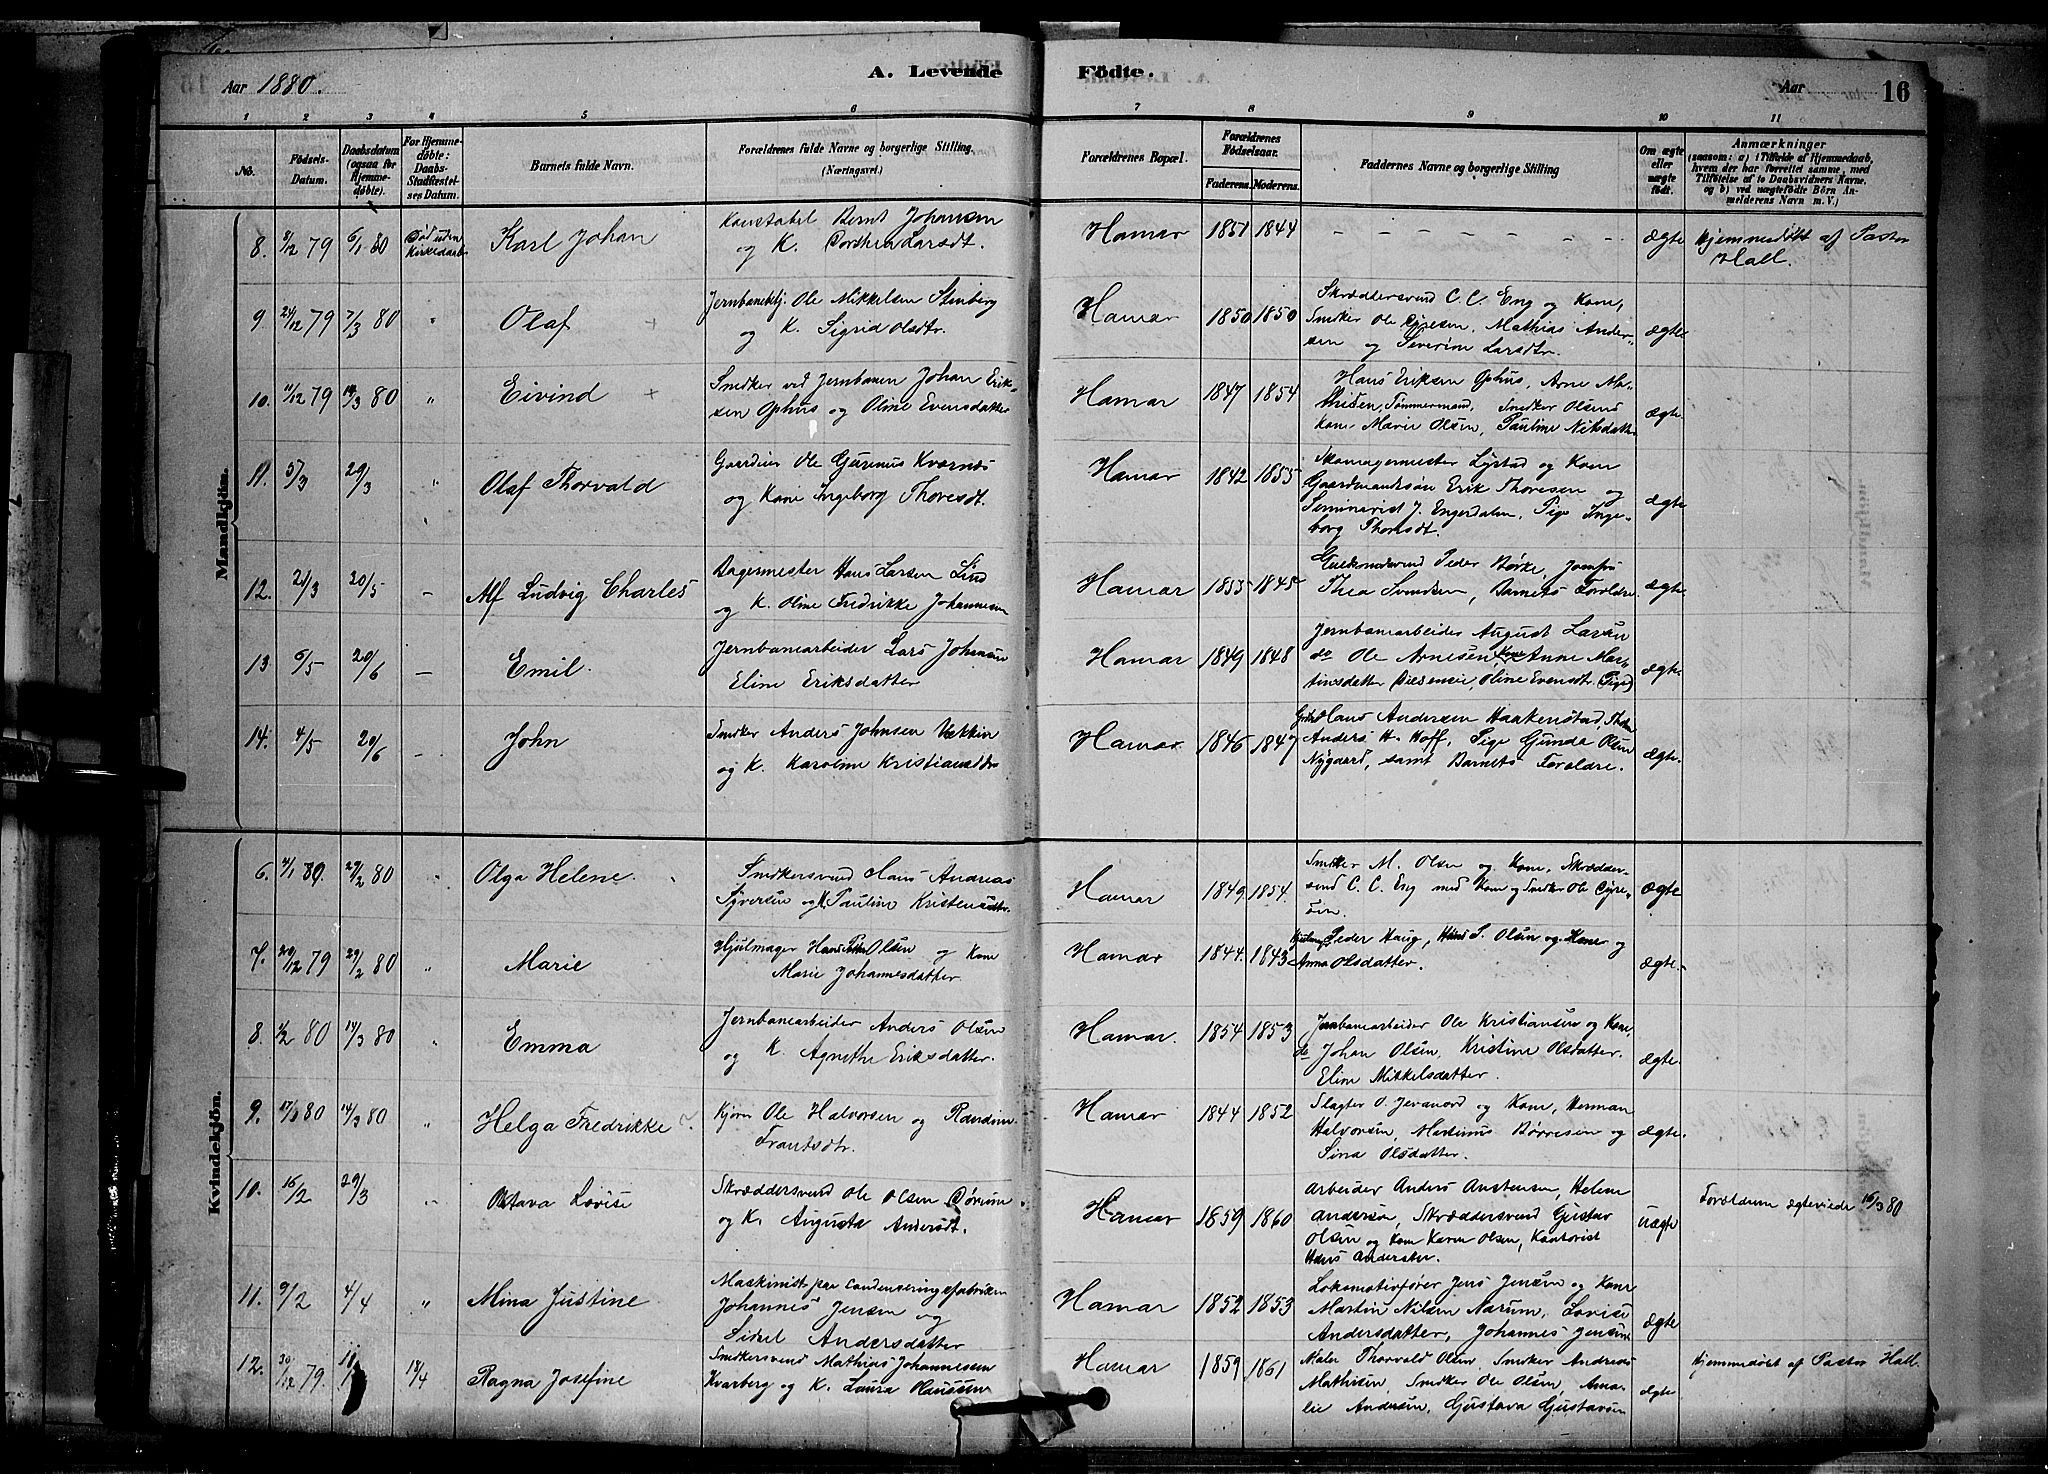 Aar 1880.
A. Levende Födte.
Aar 16
1 2 3 4 5 6 7 8 9 10 11
No.
Födsels-Datum.
Daabsdatum (ogsaa for Hjemmedøbte).
For Hjemmedøbte: Daabs-Stadfæstelses Datum.
Barnets fulde Navn.
Forældrenes fulde Navne og borgerlige Stilling. (Næringsvei.)
Forældrenes Bopæl.
Forældrenes Födselsaar.
Faderens. Moderens.
Faddernes Navne og borgerlige Stilling
Om ægte eller uægte født.
Anmærkninger
(saasom: a) i Tilfælde af Hjemmedaab, hvem der har forrettet samme, med Tilføielse af to Daabsvidners Navne, og b) ved uægtefødte Börn Anmelderens Navn m. V.)
Mandkjön.
8. 8/12 79 6/1 80 Død uden Kirkedaab Karl Johan
Konstabel Bernt Johansen
og K. Dorthea Larsdt.
Hamar 1851 1844 - - - - - - ægte Hjemmedøbt af Pastor
Hall.
9. 24/12 79 7/3 80 " Olaf +
Jernbanebtj. Ole Mikkelsen Stenberg
og K. Sigrid Olsdtr.
Hamar 1850 1850
Skræddersvend C. C. Eng og Kone,
Snedker Ole Cyresen, Mathias Ander-
sen og Severine Larsdtr.
ægte
10. 11/12 79 14/3 80 " Eivind +
Snedker ved Jernbanen Johan Erik-
sen Ophus og Oline Evensdatter
Hamar 1847 1854
Hans Eriksen Ophus, Arne Ma-
thisen, Tømmermand, Snedker Olsens
Kone Marie Olsen, Pauline Nilsdatter
ægte.
11. 5/3 29/3 " Olaf Thorvald
Gaardeier Ole Gurenus Kværnæs
og Kone Ingeborg Thoresdt.
Hamar 1842 1855
Skomagermester Lystad og Kone
Gaardmandssøn Erik Thoresen og
Seminarist J. Engerdalen, Pige Inge-
borg Thoresdt.
ægte
12. 21/3 20/5 - Alf Ludvig Charles
Bagermester Hans Larsen Lind
og K. Oline Fredrikke Johannesen
Hamar 1853 1845
Peder Børke, Jomfru
Thea Svendsen, Barnets Forældre
ægte.
13. 6/5 20/6 - Emil.
Jernbanearbeider Lars Johansen
Eline Eriksdatter
Hamar 1849 1848
Jernbanearbeider August Larsen
do Ole Arnesen, Kone Anne Mar-
tinsdatter Oline Evensdt. (Pige)
ægte.
14. 4/5 20/6 - John
Snedker Anders Johnsen Vekkin
og K. Karoline Kristiansdtr
Hamar 1846 1847
Hans Andersen Haakenstad,
Anders H. Hoff, Pige Gunda Olsen
Nygaard, samt Barnets Forældre.
ægte.
Kvindekjön.
6. 4/1 80 29/2 80 " Olga Helene.
Snedkersvend Hans Andreas
Syversen og K. Pauline Kristensdtr.
Hamar 1849. 1854.
Snedker M. Olsen og Kone, Skrædder-
svend C. C. Eng med Kone og Snedker Ole Cyre-
sen.
ægte
7. 20/12 79 29/2 80 " Marie
Hjulmager Hans Peter Olsen og Kone
Marie Johannesdatter
Hamar 1844. 1843
Peder Haug, Hans S. Olsen og Koner og
Anna Olsdatter.
ægte-
8. 1/2 80 14/3 80 " Emma
Jernbanearbeider Anders Olsen
og K. Agnethe Eriksdatter.
Hamar. 1854 1853
Jernbanearbeider Ole Kristiansen og Kone,
do Johan Olsen, Kristine Olsdatter.
Eline Mikkelsdatter.
ægte
9. 14/3 80 " Helga Fredrikke
Ole Halvorsen og Randine
Frantsdtr.
Hamar 1844 1852
Slagter O. Jevanord og Kone, Herman
Halvorsen, Martinus Børresen og
Sina Olsdatter.
ægte.
10. 16/2 29/3 " Oktava Lovise
Skræddersvend Ole Olsen Dørum
og K. Augusta Andersdt.
Hamar 1859 1860
Arbeider Anders Austensen, Helene
Andersen, Skræddersvend Gustav
Olsen og Kone Karen Olsen, Kontorist
Hans Andersen.
uægte
Forældrene ægteviede 16/3 80
11. 9/2 4/4 " Mina Justine
Maskinist paa Condenseringsfabriken
Johannes Jensen og
Sidsel Andersdatter
Hamar 1852 1853
Lokomotivfører Jens Jensen og Kone
Martin Nilsen Narum, Lovise
Andersdatter, Johannes Jensen
ægte
12. 30/12 79. 18/4 Ragna Josefine
Snedkersvend Mathias Johannessen
Kvarberg og K. Laura Olaussen
Hamar 1859 1861
Maler Thorvald Olsen, Snedker Andreas
Mathisen, Snedker Ole Olsen, Ama-
lie Andersen, Gustava Gustavsen
ægte
Hjemmedøbt af Pastor Hall.